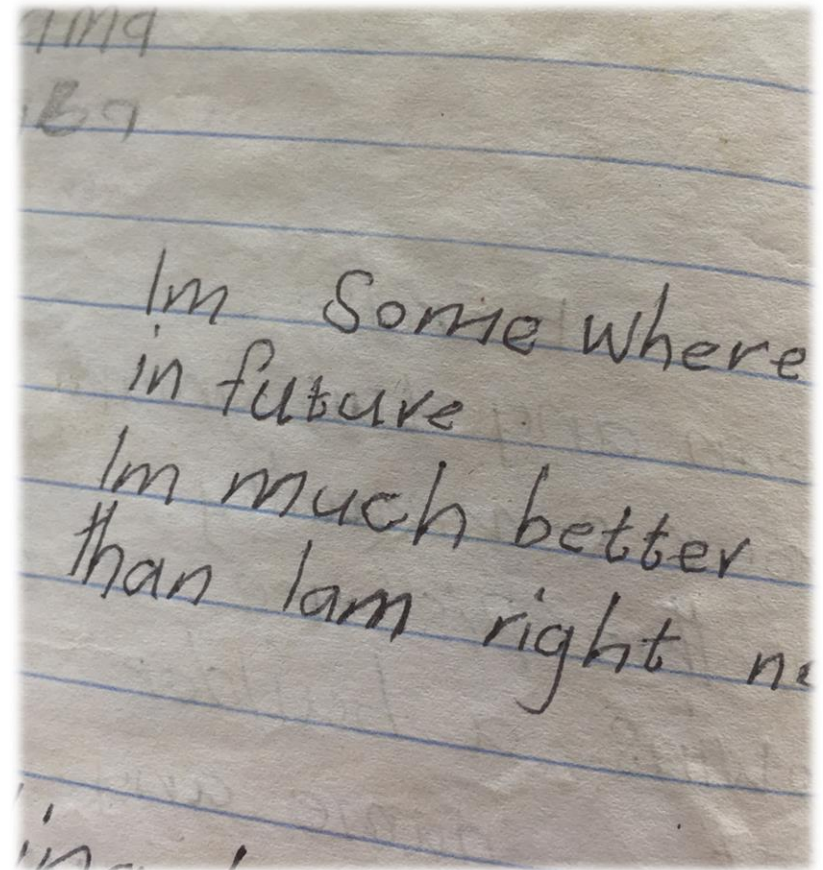 Im Some where
in future
Im much better
than Iam right